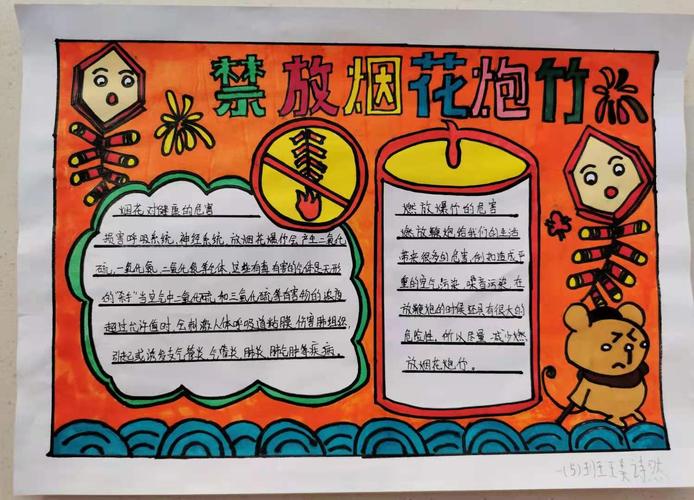 禁放烟花炮竹
烟花对健康的危害
损害呼吸系统、神经系统,放烟花爆竹会产生二氧化
硫,一氧化氮,二氧化氮等气体,这些有毒有害的气体是无形
的"杀手"当空气中二氧化硫和三氧化硫等有害物的浓度
超过允许值时,会刺激人体呼吸道粘膜,伤害肺组织,
引起或诱发支气管炎,气管炎,肺炎,肺气肿等疾病。
燃放爆竹的危害
燃放鞭炮给我们的生活
带来很多的危害,例如造成严
重的空气污染,噪音污染,在
放鞭炮的时候还具有很大的
危险性,所以尽量减少燃
放烟花炮竹。
一(5)班王诗然